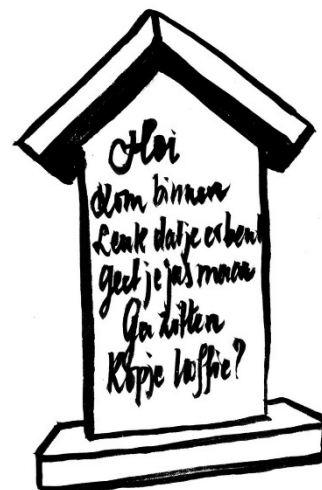 Hoi
Kom binnen
Leuk dat je er bent
Geef je jas maar
Ga zitten
Kopje koffie?